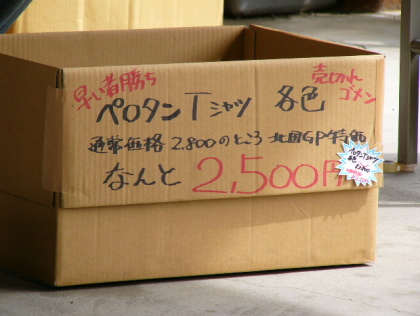 早い者勝ち
売切れゴメン
ペロタンTシャツ 各色
通常価格 2,800のところ 北国GP特価
なんと 2,500円